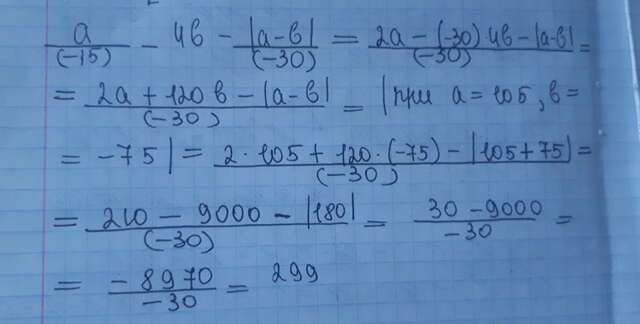 a/(-15) - 4в - |a-в|/(-30) = (2a - (-30)·4в - |a-в|)/(-30) =
= (2a + 120в - |a-в|)/(-30) = |при a=105, в=
= -75| = (2·105 + 120·(-75) - |105+75|)/(-30) =
= (210 - 9000 - |180|)/(-30) = (30 - 9000)/-30 =
= -8970/-30 = 299